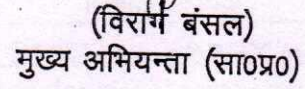 (विराग बंसल)
मुख्य अभियन्ता (सा0प्र0)